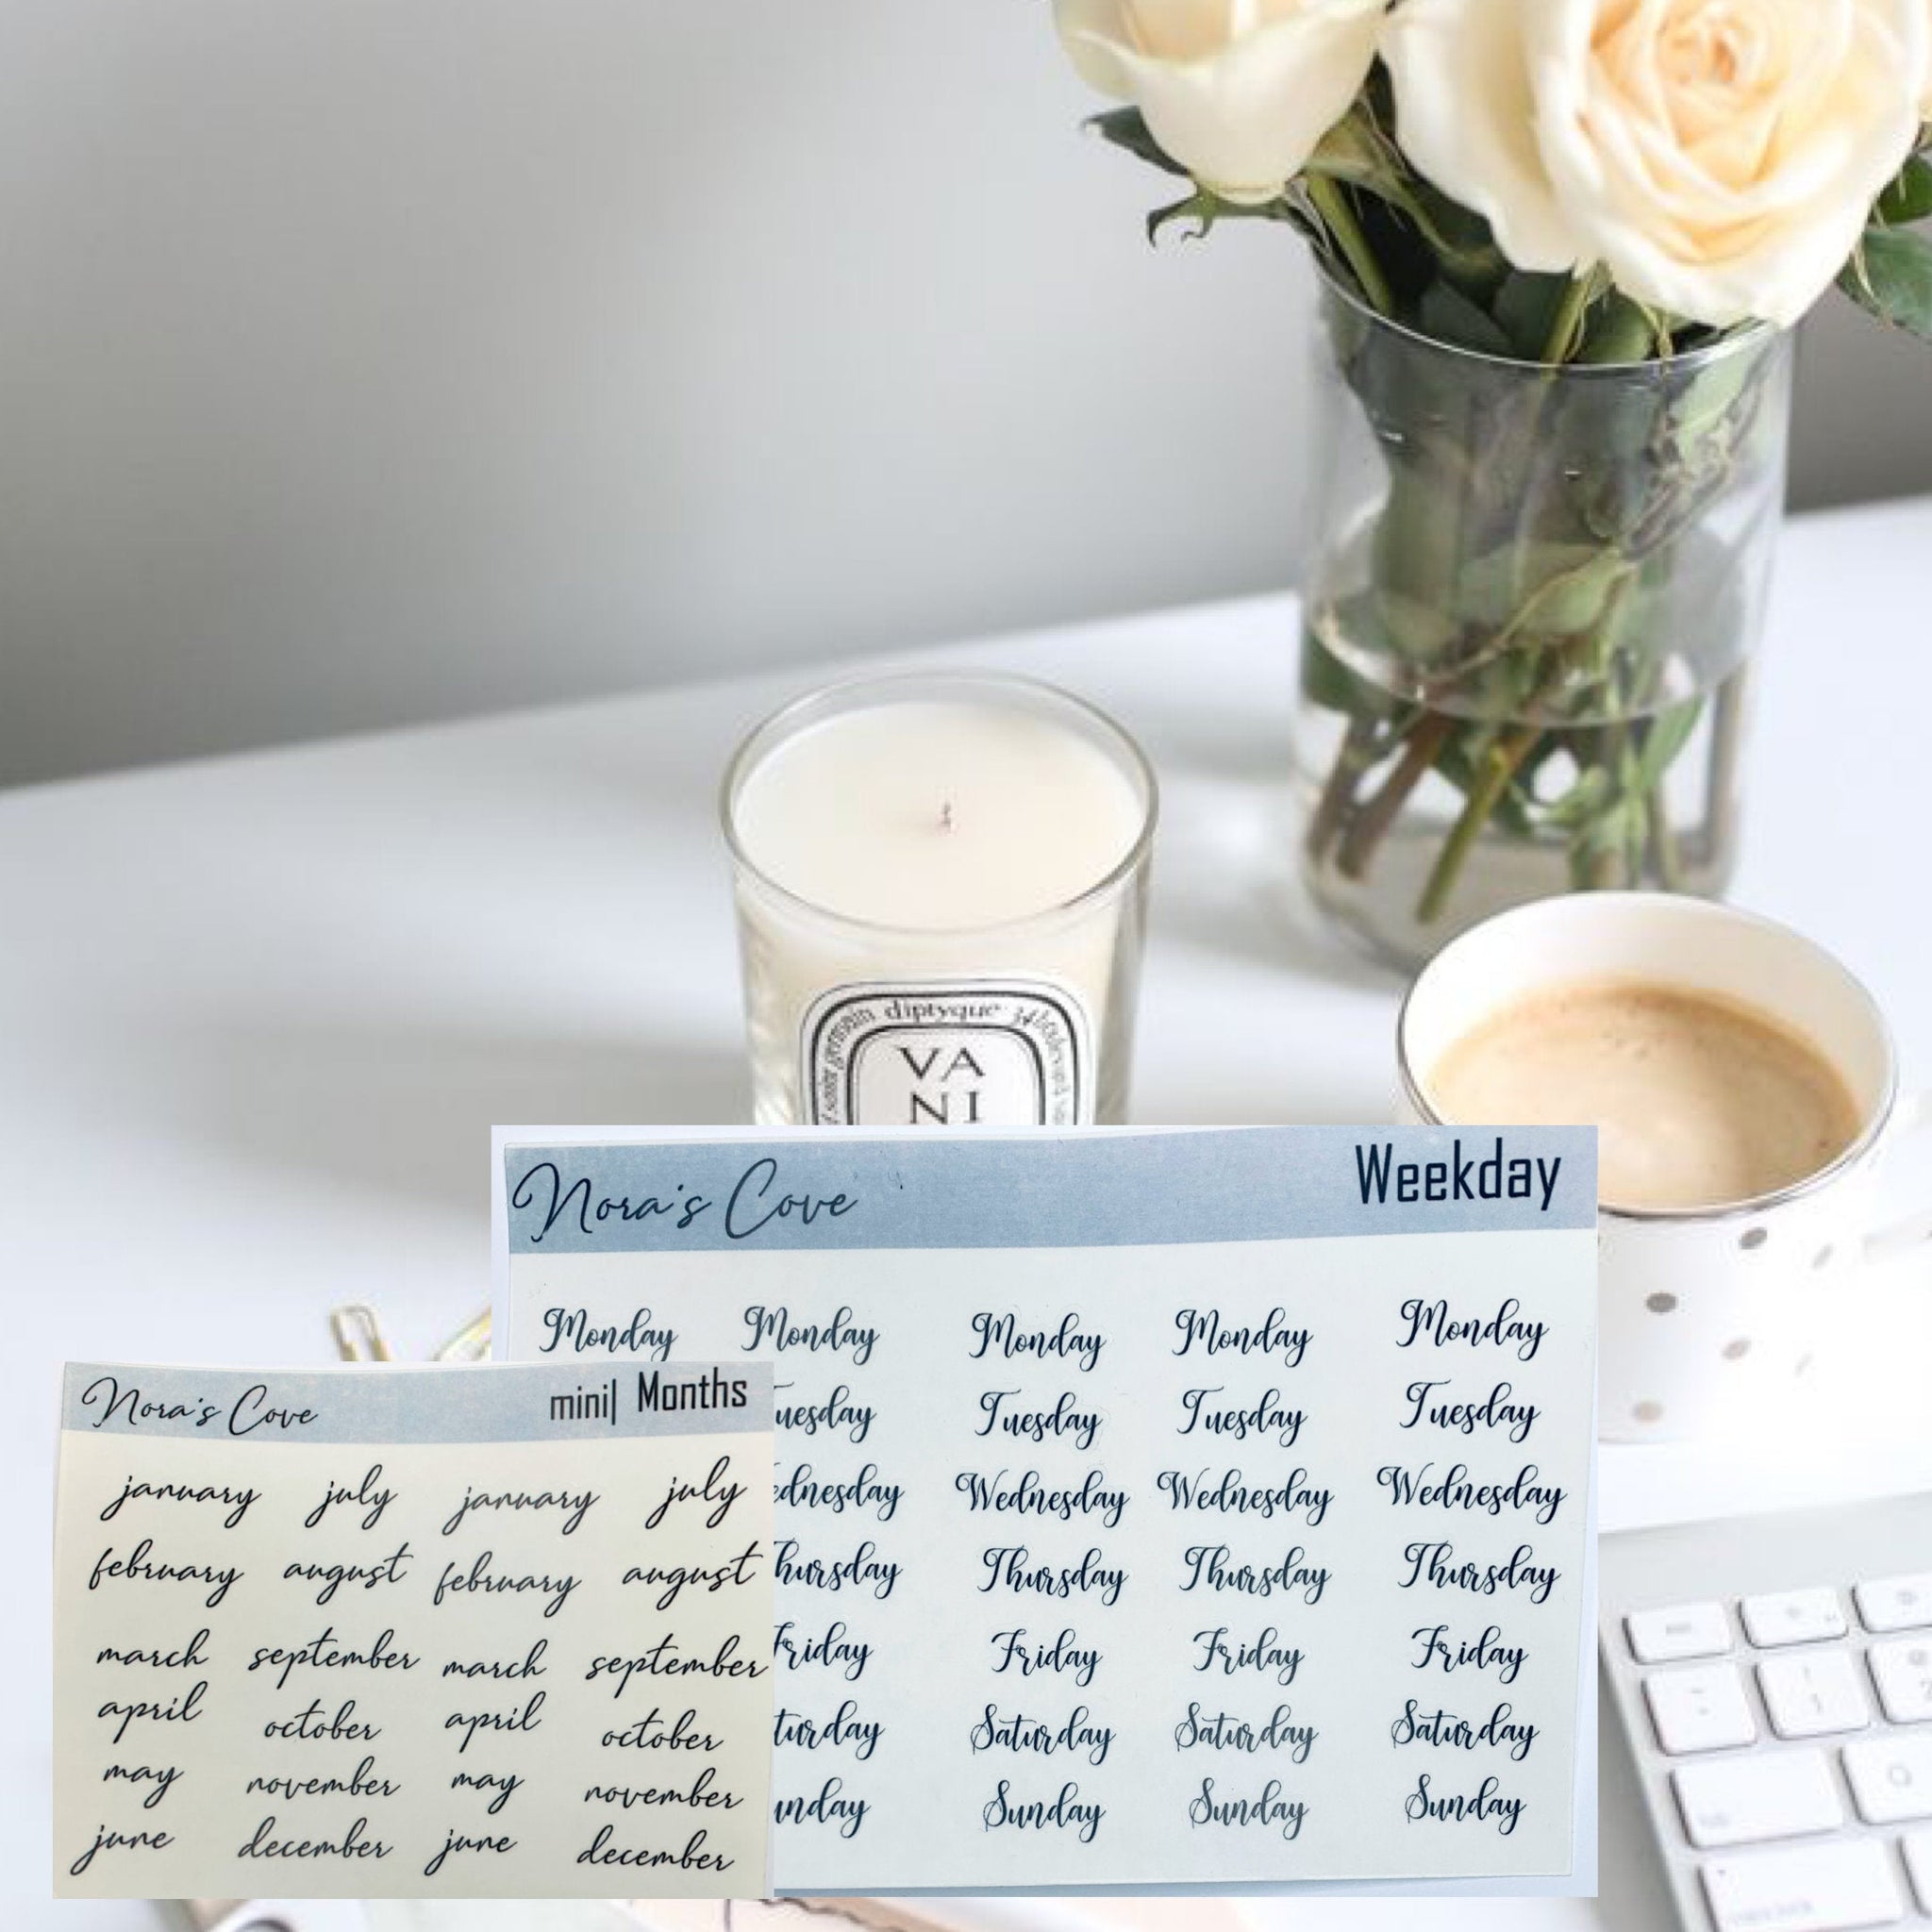 diptyque
VA
NI
Nora's Cove Weekday
Monday Monday Monday Monday Monday
Tuesday Tuesday Tuesday
Wednesday Wednesday Wednesday
Thursday Thursday Thursday
Friday Friday Friday
Saturday Saturday Saturday
Sunday Sunday Sunday
Nora's Cove mini| Months
january july january july
february august february august
march september march september
april october april october
may november may november
june december june december